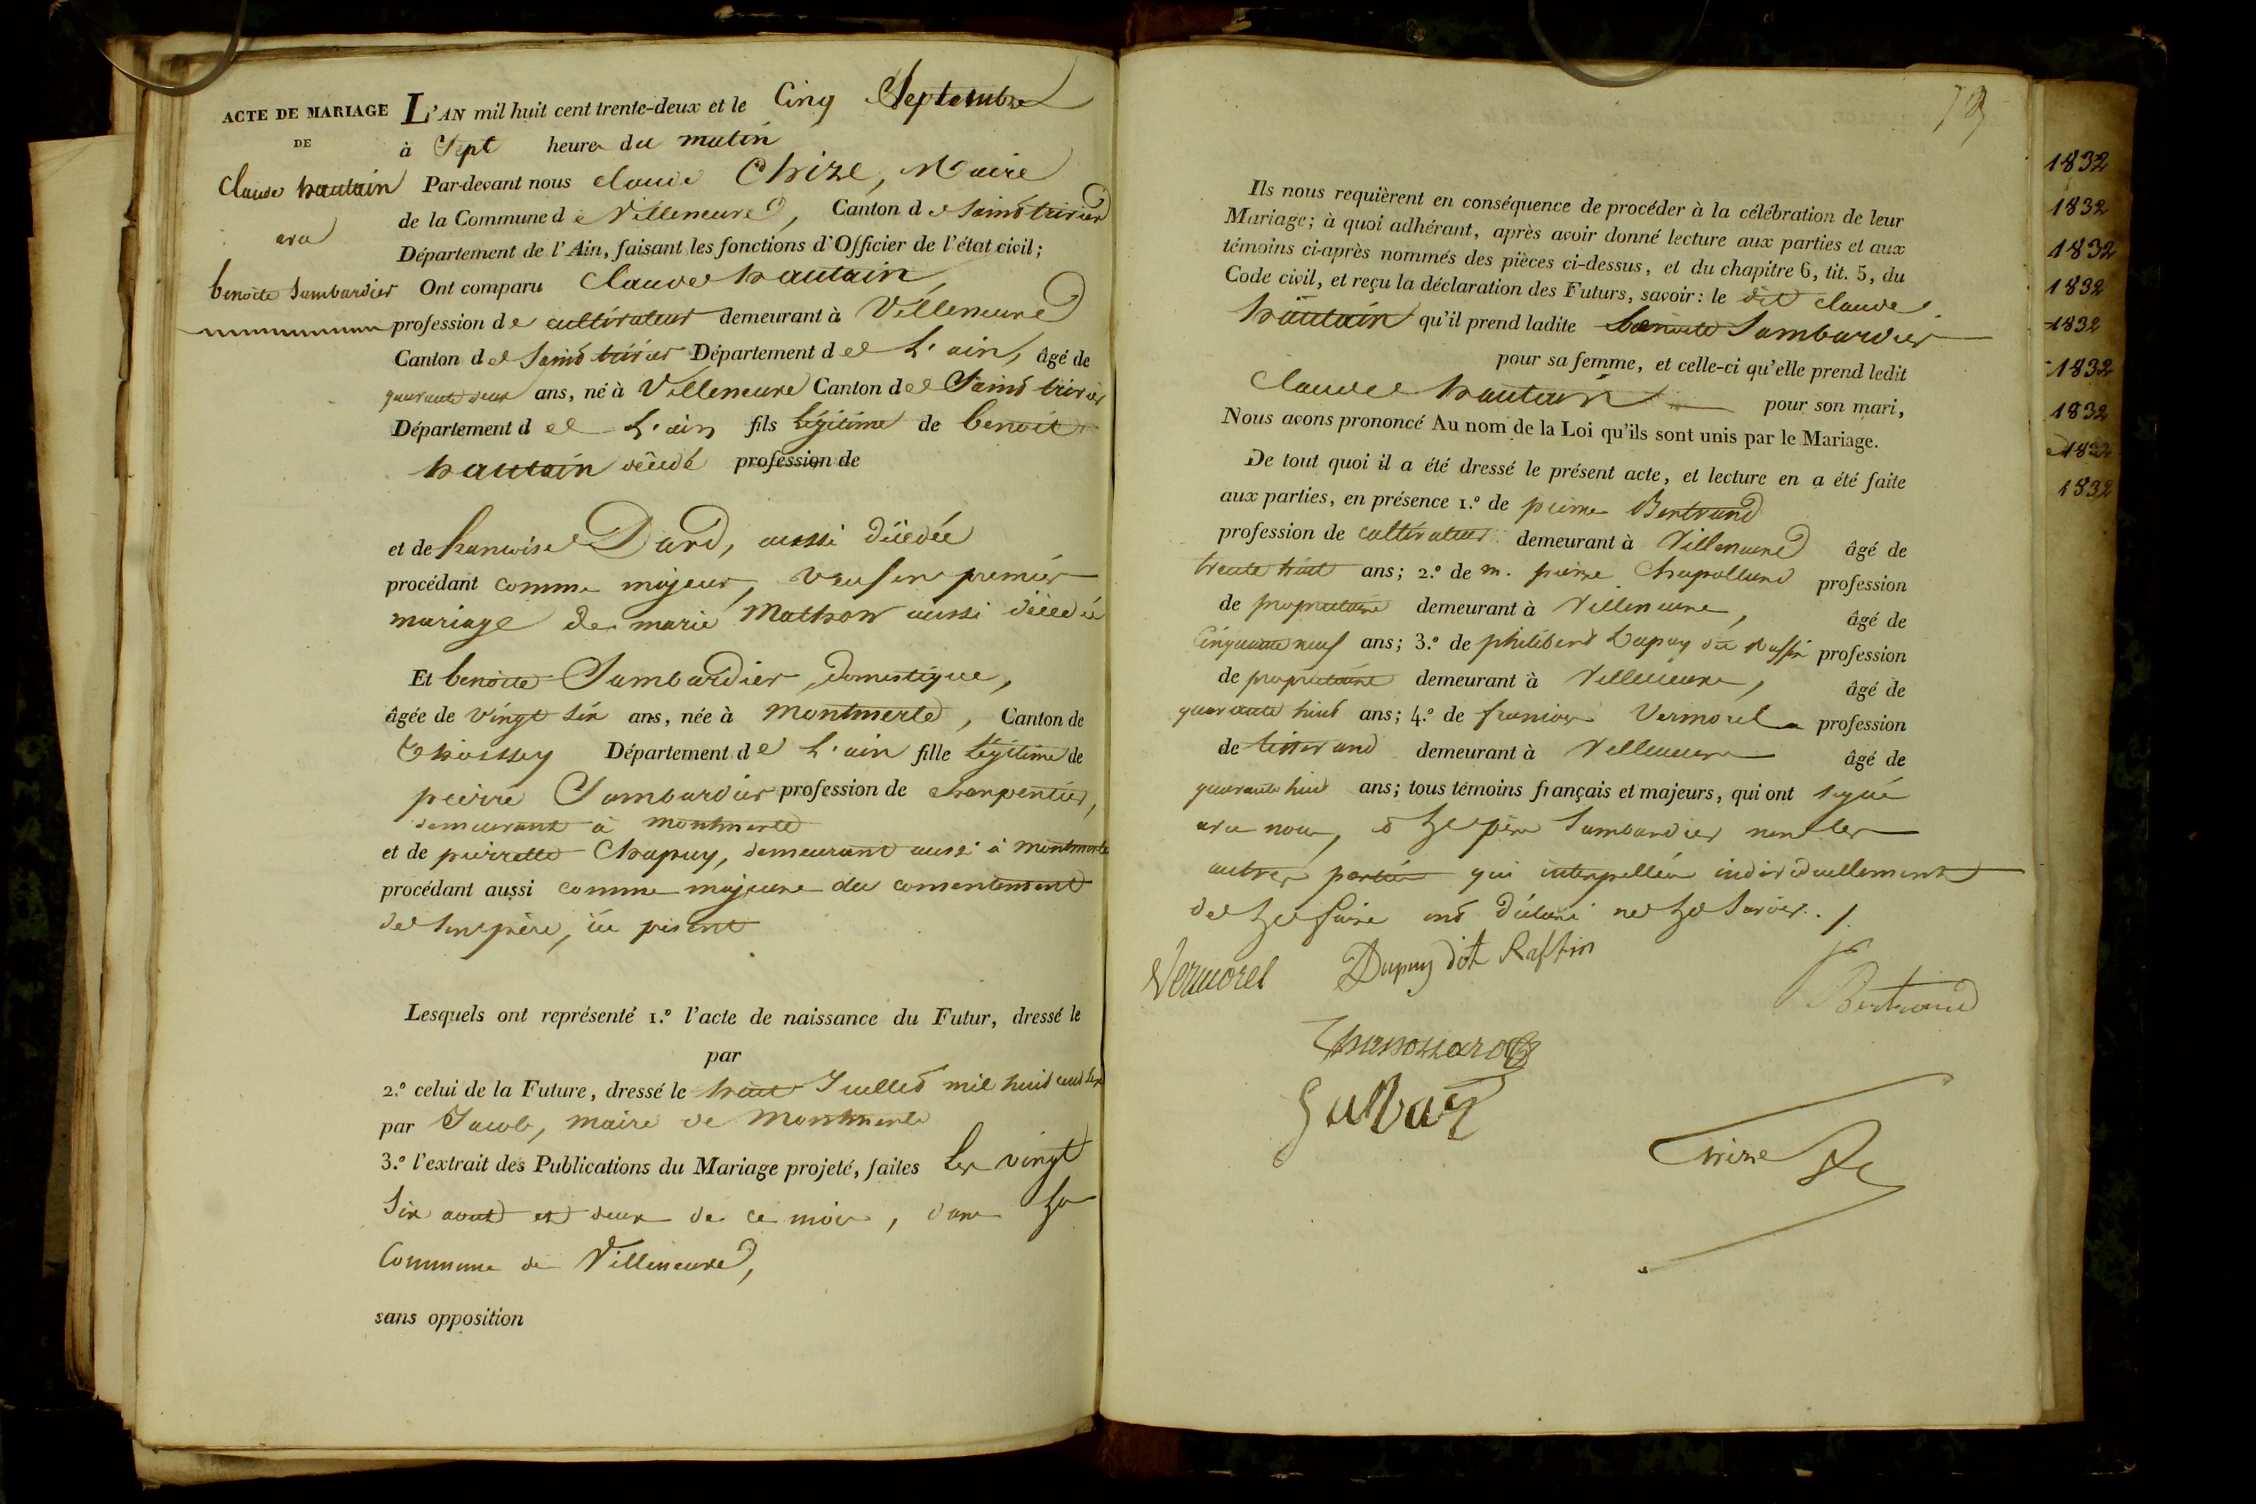 ACTE DE MARIAGE
DE
Claude hautain
avec
benoite Sambardier
L'AN mil huit cent trente-deux et le Cinq Septembre
à Sept heures du matin
Par-devant nous Claude Chize, Maire
de la Commune de Villeneuve, Canton de Saint trivier
Département de l'Ain, faisant les fonctions d'Officier de l'état civil;
Ont comparu Claude hautain
profession de cultivateur demeurant à Villeneuve
Canton de Saint trivier Département de L'ain, âgé de
quarante deux ans, né à Villeneuve Canton de Saint trivier
Département de L'ain fils légitime de benoit
hautain décédé profession de
et de francoise Dard, aussi décédée
procédant comme majeur, veuf en premier
mariage de marie Mathon aussi décédée
Et benoite Sambardier, domestique,
âgée de vingt six ans, née à montmerle, Canton de
Thoissey Département de L'ain fille légitime de
pierre Sambardier profession de charpentier,
demeurant à montmerle
et de pierrette Chapuy, demeurant aussi à montmerle
procédant aussi comme majeure du consentement
de son père, ici présent
Lesquels ont représenté 1.º l'acte de naissance du Futur, dressé le
par
2.º celui de la Future, dressé le huit Juillet mil huit cent six
par Jacob, maire de Montmerle
3.º l'extrait des Publications du Mariage projeté, faites Les vingt
Six aout et deux de ce mois, dans La
Commune de Villeneuve,
sans opposition
Ils nous requièrent en conséquence de procéder à la célébration de leur
Mariage; à quoi adhérant, après avoir donné lecture aux parties et aux
témoins ci-après nommés des pièces ci-dessus, et du chapitre 6, tit. 5, du
Code civil, et reçu la déclaration des Futurs, savoir: le dit Claude
hautain qu'il prend ladite benoite Sambardier
pour sa femme, et celle-ci qu'elle prend ledit
Claude hautain pour son mari,
Nous avons prononcé Au nom de la Loi qu'ils sont unis par le Mariage.
De tout quoi il a été dressé le présent acte, et lecture en a été faite
aux parties, en présence 1.º de pierre Bertrand
profession de cultivateur demeurant à Villeneuve âgé de
trente huit ans; 2.º de m. pierre profession
de propriétaire demeurant à Villeneuve, âgé de
Cinquante neuf ans; 3.º de philibert Dupuy dit Raffin profession
de propriétaire demeurant à Villeneuve, âgé de
quarante huit ans; 4.º de francois Vermorel profession
de tisserand demeurant à Villeneuve âgé de
quarante huit ans; tous témoins français et majeurs, qui ont signé
avec nous, et Le père Sambardier non les
autres parties qui interpellées individuellement
de Le faire ont déclaré ne Le Savoir ./.
Vermorel Dupuy dit Raffin
Bertrand
Chize
1832
1832
1832
1832
1832
1832
1832
1832
1832